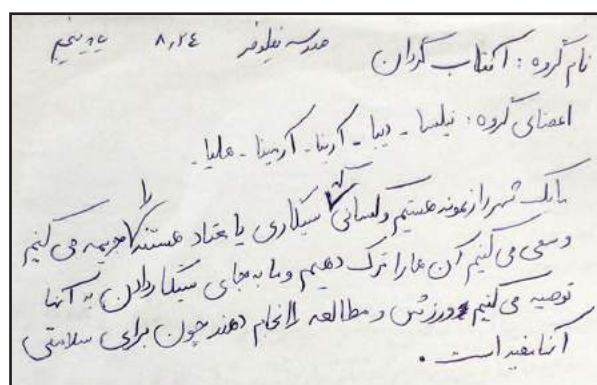 نام گروه: آفتاب گردان مدرسه نیلوفر ۸,۲٤ پایه پنجم
اعضای گروه: نیلسا - دیبا - آرینا - آرمینا - هلیا -
ما یک شهردار نمونه هستیم و کسانی که سیگاری یا معتاد هستند را جریمه می کنیم
و سعی می کنیم آن ها را ترک دهیم و ما به جای سیگار دادن به آنها
توصیه می کنیم ورزش و مطالعه انجام دهند چون برای سلامتی
آنها مفید است.